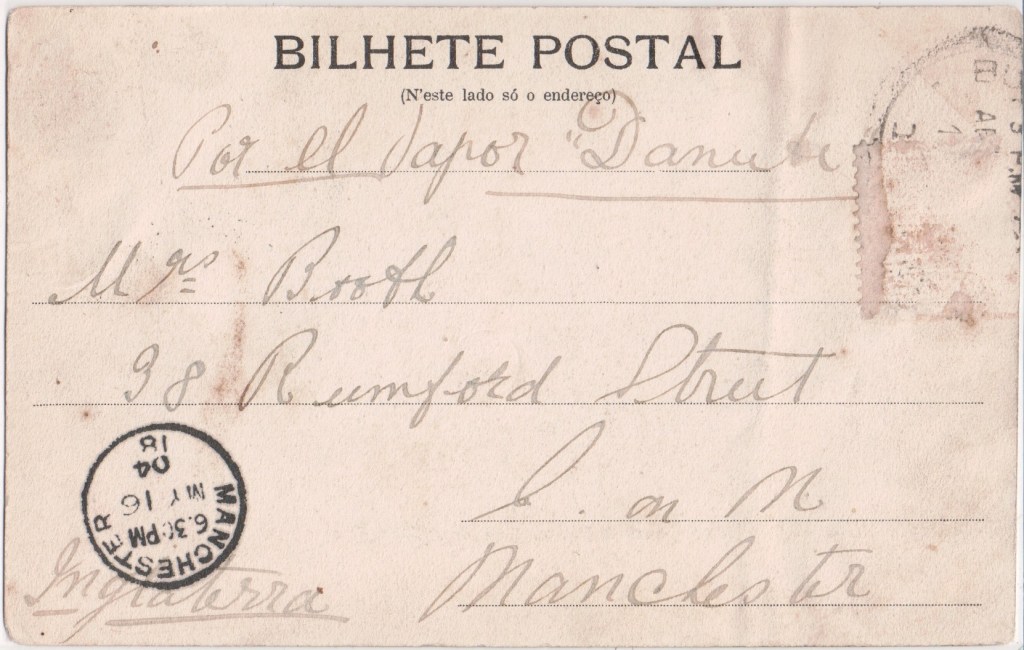 BILHETE POSTAL
(N'este lado só o endereço)
Por el Vapor "Danube
Mrs Booth
38 Rumford Street
C. on M.
Manchester
Inglaterra
MANCHESTER
6.30PM
MY 16
04
18